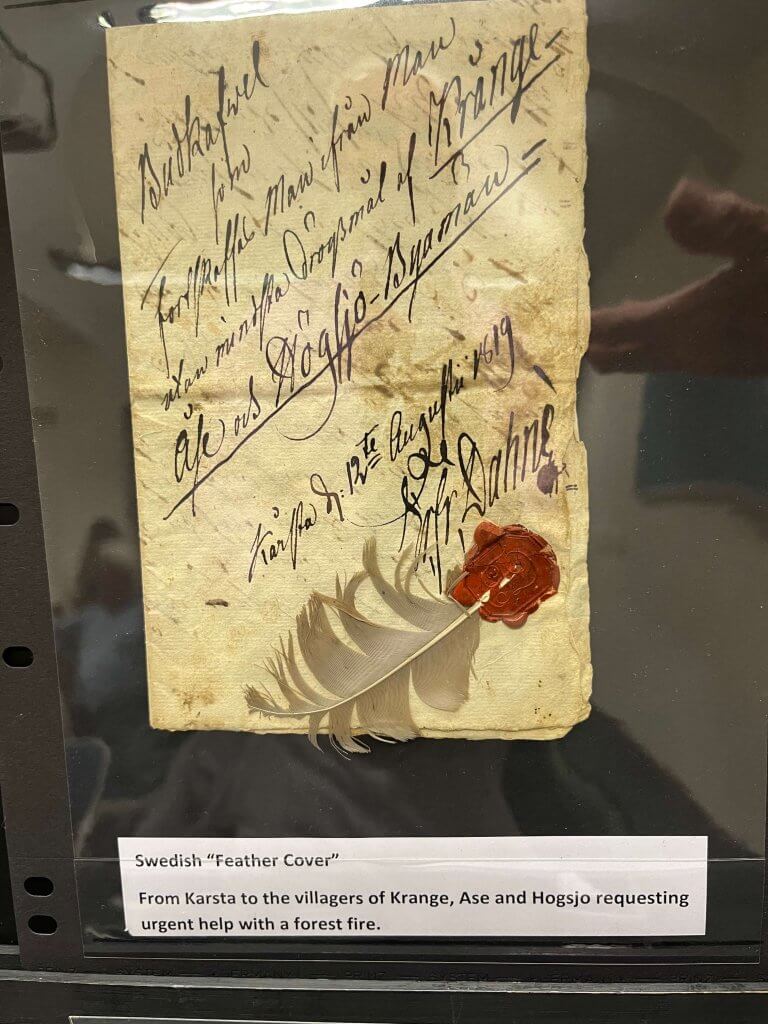 Budkafwel
som
Fortskaffas Man ifrån Man
utan mindsta drögsmål af Krånge-
Åse och Högsjö-Byamän =
Kårsta d: 12te Augustii 1819
Dahné
Swedish “Feather Cover”
From Karsta to the villagers of Krange, Ase and Hogsjo requesting
urgent help with a forest fire.
SYSTEM GERMANY PRINZ SYSTEM GERMANY